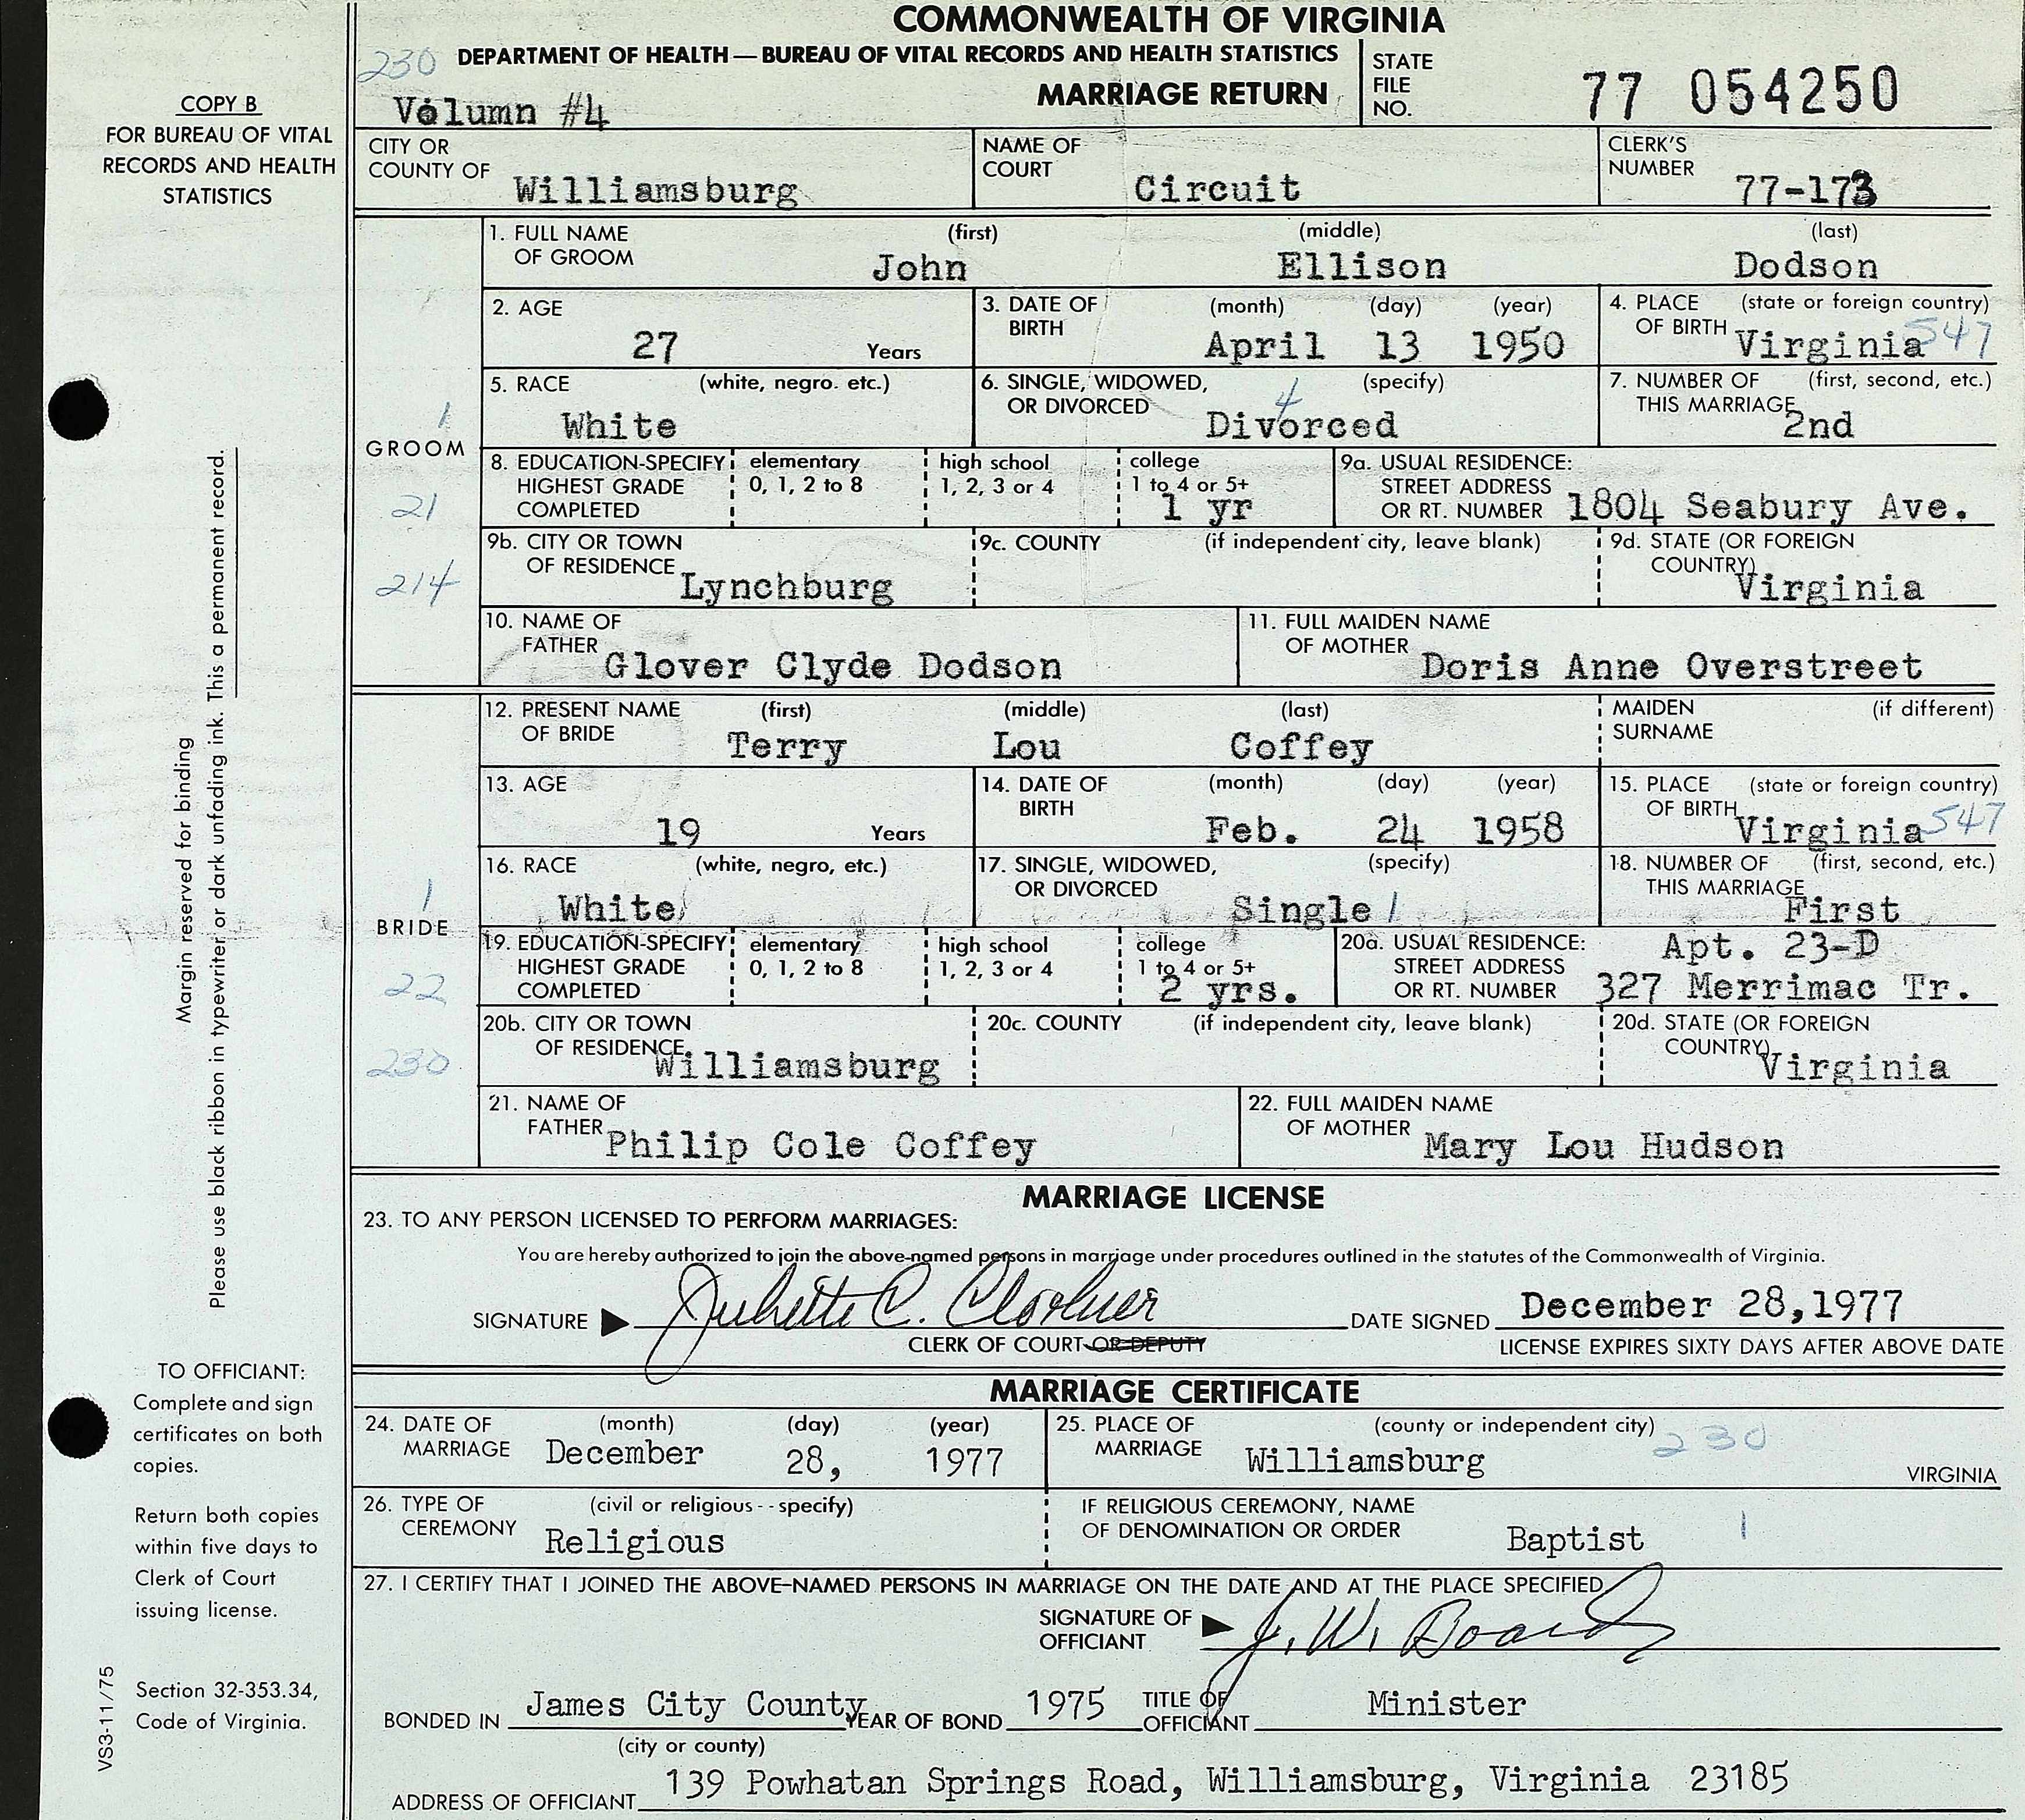 COMMONWEALTH OF VIRGINIA
230 DEPARTMENT OF HEALTH — BUREAU OF VITAL RECORDS AND HEALTH STATISTICS
MARRIAGE RETURN
Volumn #4
STATE FILE NO. 77 054250
COPY B
FOR BUREAU OF VITAL
RECORDS AND HEALTH
STATISTICS
CITY OR COUNTY OF Williamsburg
NAME OF COURT Circuit
CLERK'S NUMBER 77-173
GROOM
1
21
214
1. FULL NAME OF GROOM (first) John (middle) Ellison (last) Dodson
2. AGE 27 Years
3. DATE OF BIRTH (month) (day) (year) April 13 1950
4. PLACE OF BIRTH (state or foreign country) Virginia 547
5. RACE (white, negro. etc.) White
6. SINGLE, WIDOWED, OR DIVORCED (specify) Divorced 4
7. NUMBER OF THIS MARRIAGE (first, second, etc.) 2nd
8. EDUCATION-SPECIFY HIGHEST GRADE COMPLETED elementary 0, 1, 2 to 8 high school 1, 2, 3 or 4 college 1 to 4 or 5+ 1 yr
9a. USUAL RESIDENCE: STREET ADDRESS OR RT. NUMBER 1804 Seabury Ave.
9b. CITY OR TOWN OF RESIDENCE Lynchburg
9c. COUNTY (if independent city, leave blank)
9d. STATE (OR FOREIGN COUNTRY) Virginia
10. NAME OF FATHER Glover Clyde Dodson
11. FULL MAIDEN NAME OF MOTHER Doris Anne Overstreet
BRIDE
1
22
230
12. PRESENT NAME OF BRIDE (first) Terry (middle) Lou (last) Coffey
MAIDEN SURNAME (if different)
13. AGE 19 Years
14. DATE OF BIRTH (month) (day) (year) Feb. 24 1958
15. PLACE OF BIRTH (state or foreign country) Virginia 547
16. RACE (white, negro, etc.) White
17. SINGLE, WIDOWED, OR DIVORCED (specify) Single 1
18. NUMBER OF THIS MARRIAGE (first, second, etc.) First
19. EDUCATION-SPECIFY HIGHEST GRADE COMPLETED elementary 0, 1, 2 to 8 high school 1, 2, 3 or 4 college 1 to 4 or 5+ 2 yrs.
20a. USUAL RESIDENCE: STREET ADDRESS OR RT. NUMBER Apt. 23-D 327 Merrimac Tr.
20b. CITY OR TOWN OF RESIDENCE Williamsburg
20c. COUNTY (if independent city, leave blank)
20d. STATE (OR FOREIGN COUNTRY) Virginia
21. NAME OF FATHER Philip Cole Coffey
22. FULL MAIDEN NAME OF MOTHER Mary Lou Hudson
MARRIAGE LICENSE
23. TO ANY PERSON LICENSED TO PERFORM MARRIAGES:
You are hereby authorized to join the above-named persons in marriage under procedures outlined in the statutes of the Commonwealth of Virginia.
SIGNATURE C. DATE SIGNED December 28, 1977
CLERK OF COURT OR DEPUTY
LICENSE EXPIRES SIXTY DAYS AFTER ABOVE DATE
MARRIAGE CERTIFICATE
24. DATE OF MARRIAGE (month) (day) (year) December 28, 1977
25. PLACE OF MARRIAGE (county or independent city) Williamsburg 230 VIRGINIA
26. TYPE OF CEREMONY (civil or religious -- specify) Religious
IF RELIGIOUS CEREMONY, NAME OF DENOMINATION OR ORDER Baptist 1
27. I CERTIFY THAT I JOINED THE ABOVE-NAMED PERSONS IN MARRIAGE ON THE DATE AND AT THE PLACE SPECIFIED
SIGNATURE OF OFFICIANT J. W.
BONDED IN James City County YEAR OF BOND 1975 TITLE OF OFFICIANT Minister
(city or county)
ADDRESS OF OFFICIANT 139 Powhatan Springs Road, Williamsburg, Virginia 23185
Margin reserved for binding
Please use black ribbon in typewriter or dark unfading ink. This a permanent record.
TO OFFICIANT:
Complete and sign
certificates on both
copies.
Return both copies
within five days to
Clerk of Court
issuing license.
Section 32-353.34,
Code of Virginia.
VS3-11/75